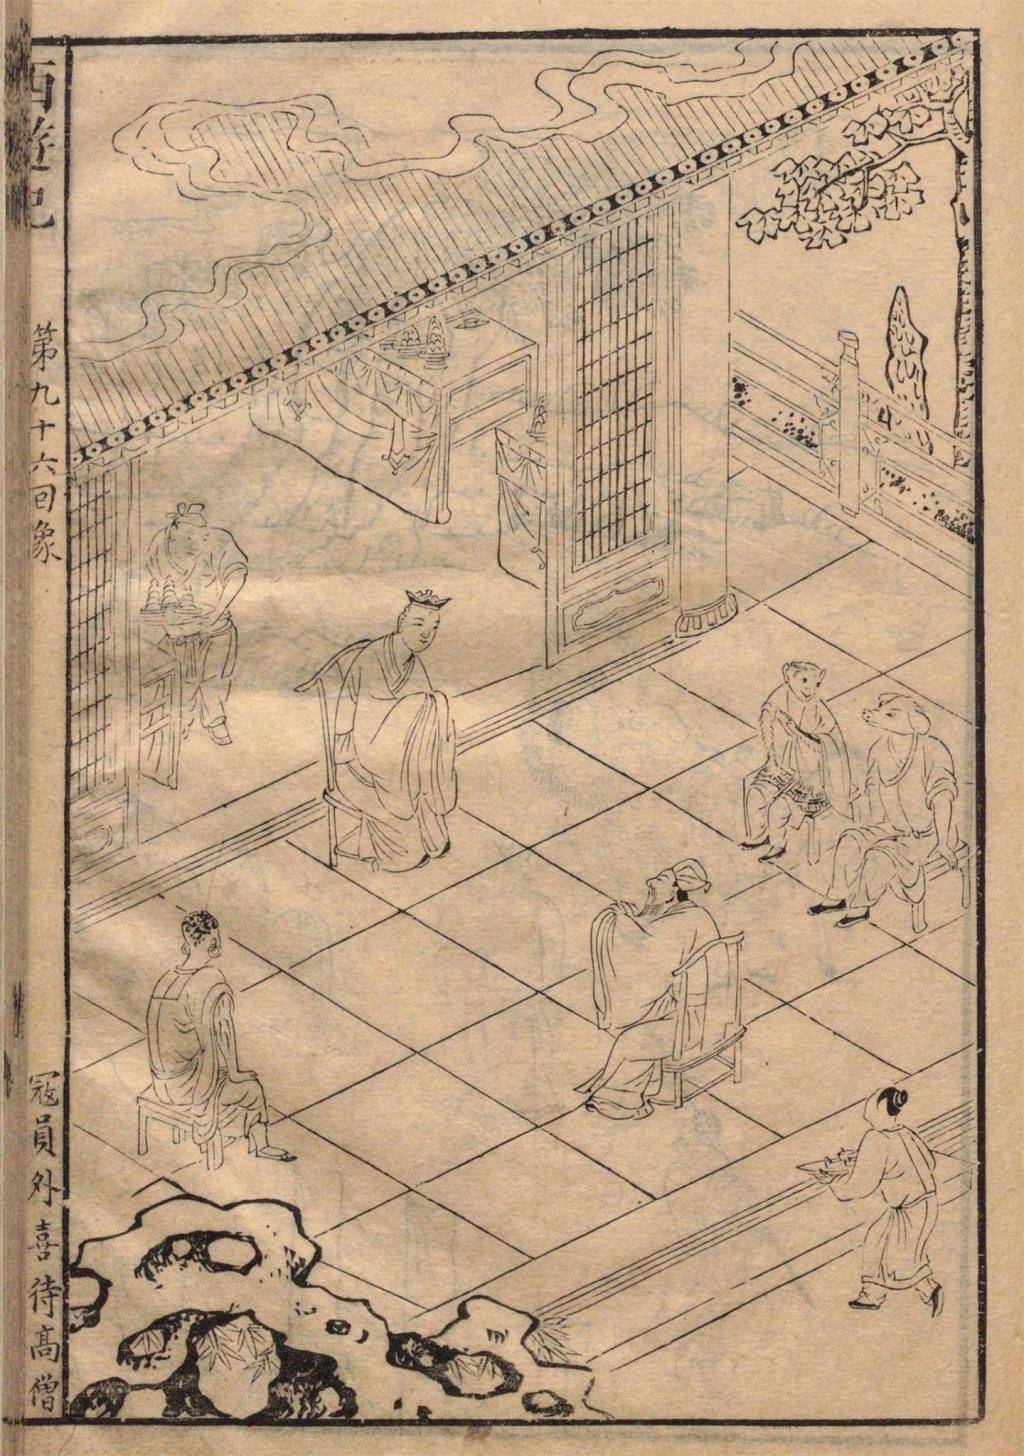 西遊記
第九十六回象
冦員外喜待高僧